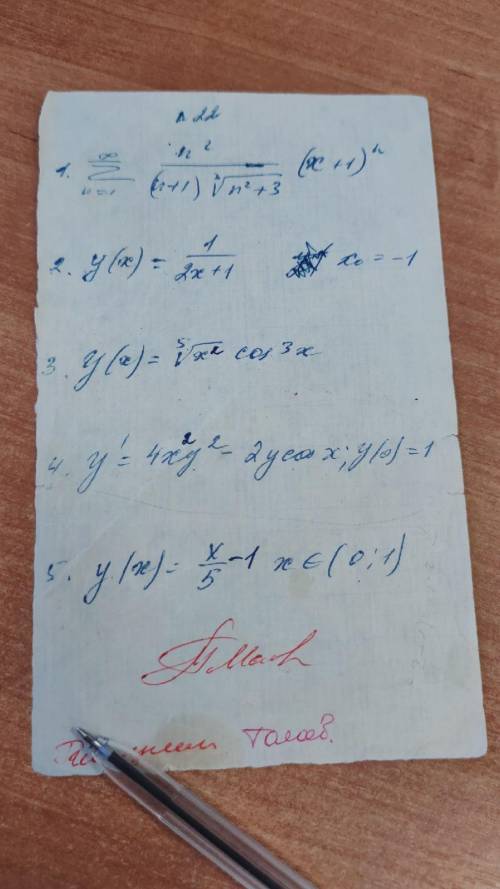 n 22
1. ∞ ∑ n=1 n² / (n+1) √n²+3 (x+1)ⁿ
2. y(x) = 1 / 2x+1 x₀ = -1
3. y(x) = ⁵√x² cos 3x
4. y' = 4x²y² - 2y cos x; y(0) = 1
5. y(x) = x/5 - 1 x ∈ (0; 1)